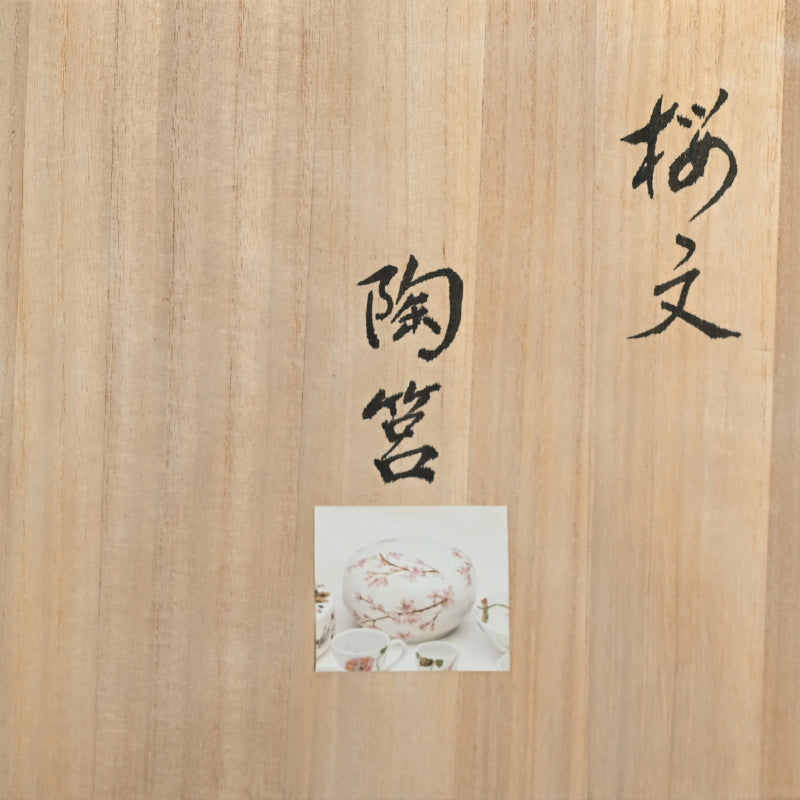 桜文
陶筥